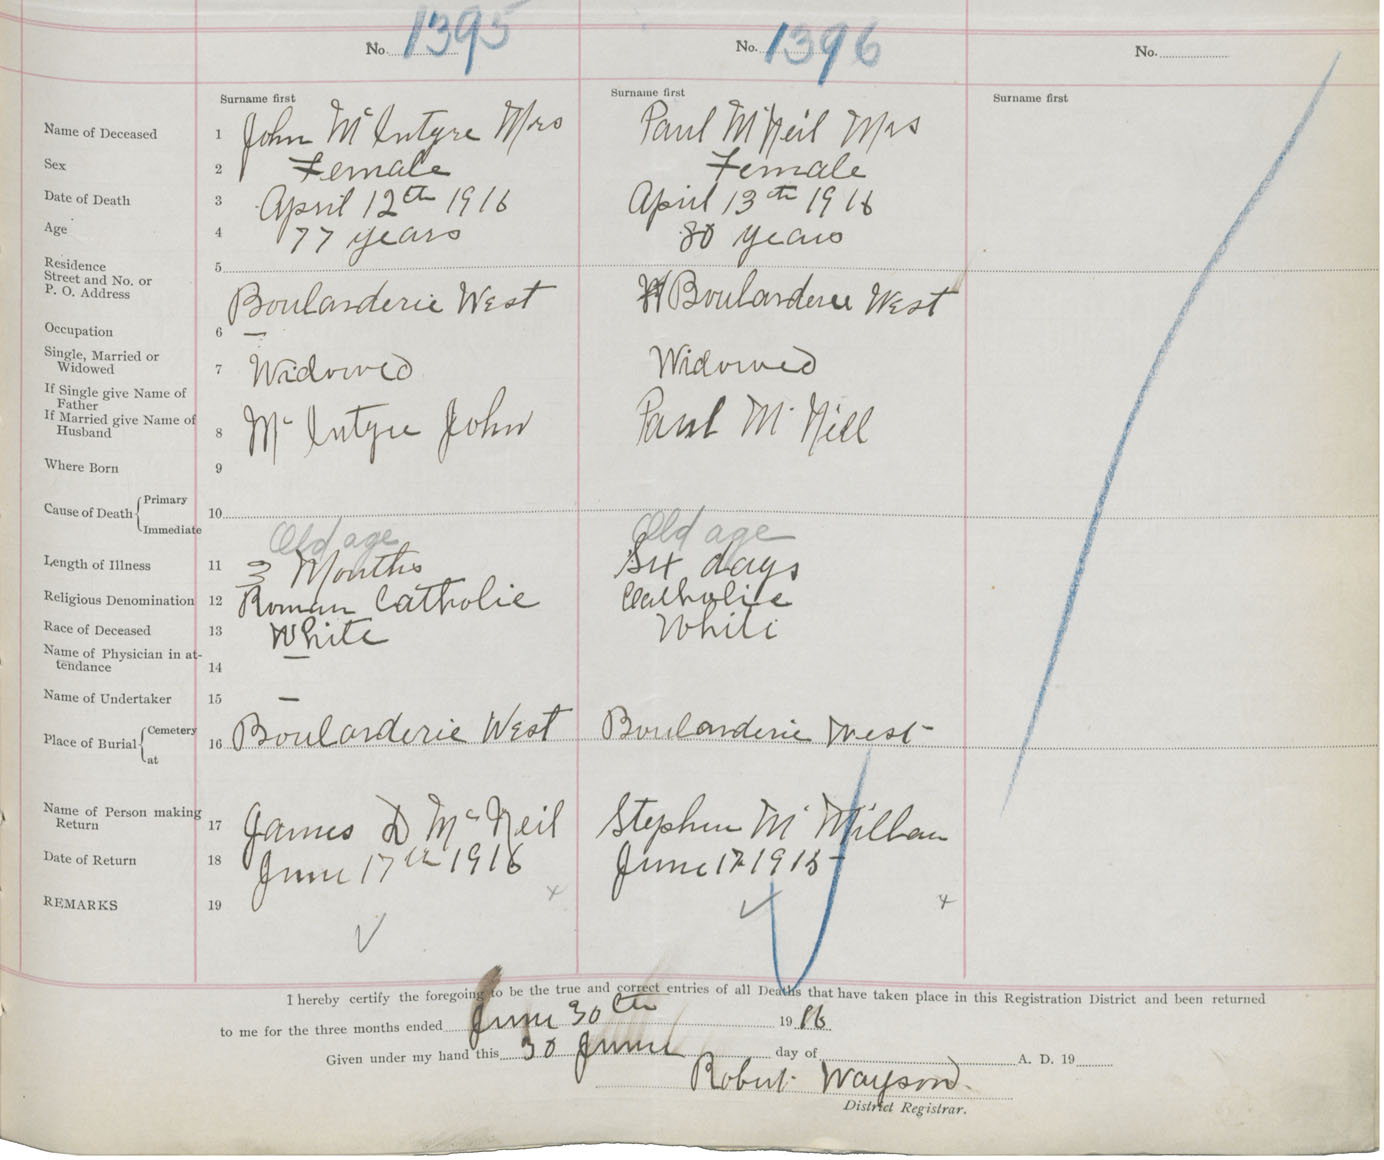 No. 1395 No. 1396 No.
Surname first Surname first Surname first
Name of Deceased 1 John Mc Intyre Mrs Paul Mc Neil Mrs
Sex 2 Female Female
Date of Death 3 April 12th 1916 April 13th 1916
Age 4 77 years 80 years
Residence
Street and No. or
P. O. Address 5 Boularderie West Boularderie West
Occupation 6 —
Single, Married or
Widowed 7 Widowed Widowed
If Single give Name of
Father
If Married give Name of
Husband 8 Mc Intyre John Paul Mc Neil
Where Born 9
Cause of Death { Primary
Immediate 10 Old age Old age
Length of Illness 11 3 Months Six days
Religious Denomination 12 Roman Catholic Catholic
Race of Deceased 13 White White
Name of Physician in at-
tendance 14 —
Name of Undertaker 15 —
Place of Burial { Cemetery
at 16 Boularderie West Boularderie West
Name of Person making
Return 17 James D Mc Neil Stephen Mc Millan
Date of Return 18 June 17th 1916 June 17 1915
REMARKS 19
I hereby certify the foregoing to be the true and correct entries of all Deaths that have taken place in this Registration District and been returned
to me for the three months ended June 30th 1916
Given under my hand this 30 June day of A. D. 19
Robert Wayson
District Registrar.